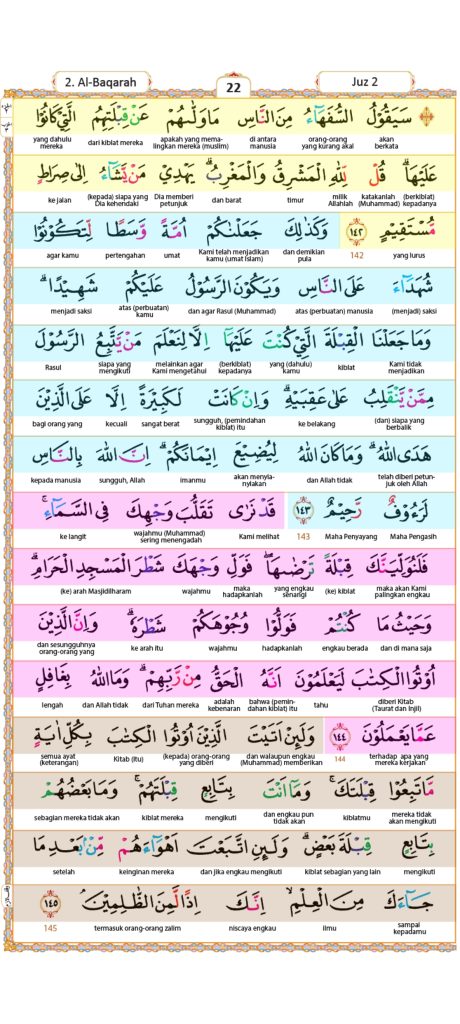 2. Al-Baqarah 22 Juz 2
سَيَقُوْلُ السُّفَهَاۤءُ مِنَ النَّاسِ مَا وَلّٰىهُمْ عَنْ قِبْلَتِهِمُ الَّتِيْ كَانُوْا
akan berkata orang-orang yang kurang akal di antara manusia apakah yang memalingkan mereka (muslim) dari kiblat mereka yang dahulu mereka
عَلَيْهَاۗ قُلْ لِّلّٰهِ الْمَشْرِقُ وَالْمَغْرِبُۗ يَهْدِيْ مَنْ يَّشَاۤءُ اِلٰى صِرَاطٍ
(berkiblat) kepadanya katakanlah (Muhammad) milik Allahlah timur dan barat Dia memberi petunjuk (kepada) siapa yang Dia kehendaki ke jalan
مُّسْتَقِيْمٍ ١٤٢ وَكَذٰلِكَ جَعَلْنٰكُمْ اُمَّةً وَّسَطًا لِّتَكُوْنُوْا
yang lurus 142 dan demikian pula Kami telah menjadikan kamu (umat Islam) umat pertengahan agar kamu
شُهَدَاۤءَ عَلَى النَّاسِ وَيَكُوْنَ الرَّسُوْلُ عَلَيْكُمْ شَهِيْدًاۗ
(menjadi) saksi atas (perbuatan) manusia dan agar Rasul (Muhammad) atas (perbuatan) kamu menjadi saksi
وَمَا جَعَلْنَا الْقِبْلَةَ الَّتِيْ كُنْتَ عَلَيْهَآ اِلَّا لِنَعْلَمَ مَنْ يَّتَّبِعُ الرَّسُوْلَ
Kami tidak menjadikan kiblat yang (dahulu) kamu (berkiblat) kepadanya melainkan agar Kami mengetahui siapa yang mengikuti Rasul
مِمَّنْ يَّنْقَلِبُ عَلٰى عَقِبَيْهِۗ وَاِنْ كَانَتْ لَكَبِيْرَةً اِلَّا عَلَى الَّذِيْنَ
(dan) siapa yang berbalik ke belakang sungguh, (pemindahan kiblat) itu sangat berat kecuali bagi orang yang
هَدَى اللّٰهُۗ وَمَا كَانَ اللّٰهُ لِيُضِيْعَ اِيْمَانَكُمْۗ اِنَّ اللّٰهَ بِالنَّاسِ
telah diberi petunjuk oleh Allah dan Allah tidak akan menyia-nyiakan imanmu sungguh, Allah kepada manusia
لَرَءُوْفٌ رَّحِيْمٌ ١٤٣ قَدْ نَرٰى تَقَلُّبَ وَجْهِكَ فِى السَّمَاۤءِۚ
Maha Pengasih Maha Penyayang 143 Kami melihat wajahmu (Muhammad) sering menengadah ke langit
فَلَنُوَلِّيَنَّكَ قِبْلَةً تَرْضٰىهَاۖ فَوَلِّ وَجْهَكَ شَطْرَ الْمَسْجِدِ الْحَرَامِۗ
maka akan Kami palingkan engkau (ke) kiblat yang engkau senangi maka hadapkanlah wajahmu (ke) arah Masjidilharam
وَحَيْثُ مَا كُنْتُمْ فَوَلُّوْا وُجُوْهَكُمْ شَطْرَهٗۗ وَاِنَّ الَّذِيْنَ
dan di mana saja engkau berada hadapkanlah wajahmu ke arah itu dan sesungguhnya orang-orang yang
اُوْتُوا الْكِتٰبَ لَيَعْلَمُوْنَ اَنَّهُ الْحَقُّ مِنْ رَّبِّهِمْۗ وَمَا اللّٰهُ بِغَافِلٍ
diberi Kitab (Taurat dan Injil) tahu bahwa (pemindahan kiblat) itu adalah kebenaran dari Tuhan mereka dan Allah tidak lengah
عَمَّا يَعْمَلُوْنَ ١٤٤ وَلَىِٕنْ اَتَيْتَ الَّذِيْنَ اُوْتُوا الْكِتٰبَ بِكُلِّ اٰيَةٍ
terhadap apa yang mereka kerjakan 144 dan walaupun engkau (Muhammad) memberikan (kepada) orang-orang yang diberi Kitab (itu) semua ayat (keterangan)
مَّا تَبِعُوْا قِبْلَتَكَۚ وَمَآ اَنْتَ بِتَابِعٍ قِبْلَتَهُمْۚ وَمَا بَعْضُهُمْ
mereka tidak akan mengikuti kiblatmu dan engkau pun tidak akan mengikuti kiblat mereka sebagian mereka tidak akan
بِتَابِعٍ قِبْلَةَ بَعْضٍۗ وَلَىِٕنِ اتَّبَعْتَ اَهْوَاۤءَهُمْ مِّنْۢ بَعْدِ مَا
mengikuti kiblat sebagian yang lain dan jika engkau mengikuti keinginan mereka setelah
جَاۤءَكَ مِنَ الْعِلْمِۙ اِنَّكَ اِذًا لَّمِنَ الظّٰلِمِيْنَۘ ١٤٥
sampai kepadamu ilmu niscaya engkau termasuk orang-orang zalim 145